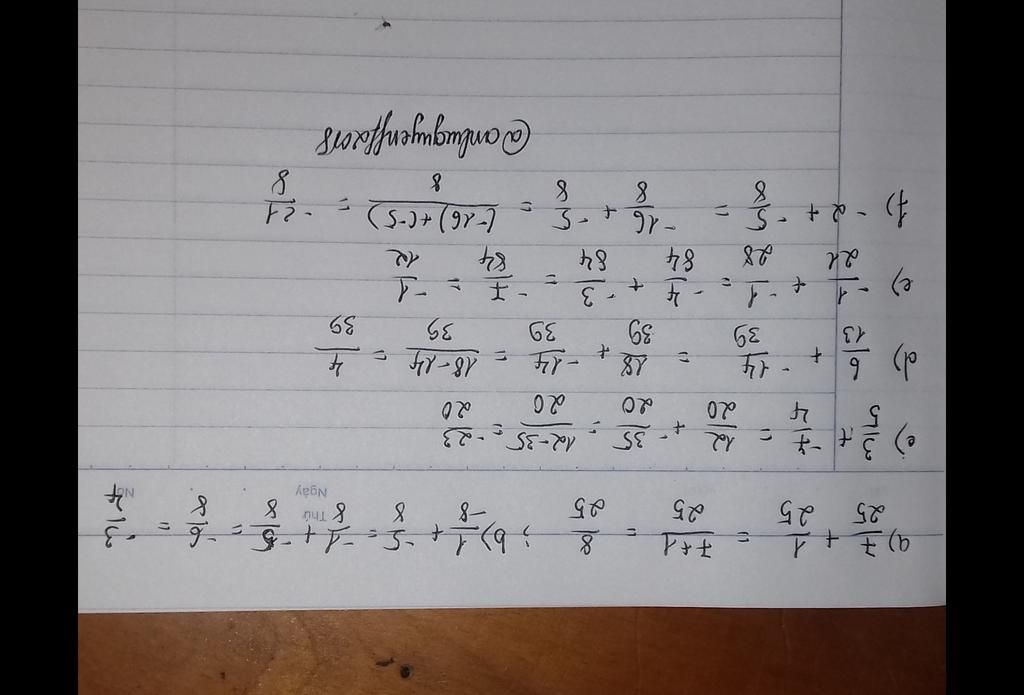 a) 7/25 + 1/25 = 7+1/25 = 8/25 ; b) 1/-8 + -5/8 = -1/8 + -5/8 = -6/8 = -3/4
Thứ
Ngày
c) 3/5 + -7/4 = 12/20 + -35/20 = 12-35/20 = -23/20
d) 6/13 + -14/39 = 18/39 + -14/39 = 18-14/39 = 4/39
e) -1/21 + -1/28 = -4/84 + -3/84 = -7/84 = -1/12
f) -2 + -5/8 = -16/8 + -5/8 = (-16)+(-5)/8 = -21/8